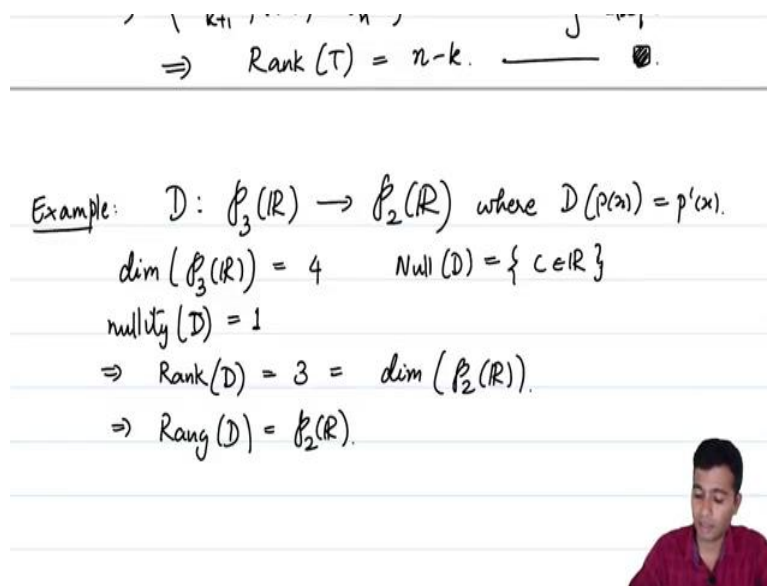 k+1
n
⇒ Rank (T) = n-k.
Example: D: P₃(ℝ) → P₂(ℝ) where D(p(x)) = p'(x).
dim (P₃(ℝ)) = 4 Null (D) = { C∈ℝ }
nullity (D) = 1
⇒ Rank(D) = 3 = dim (P₂(ℝ)).
⇒ Rang (D) = P₂(ℝ).